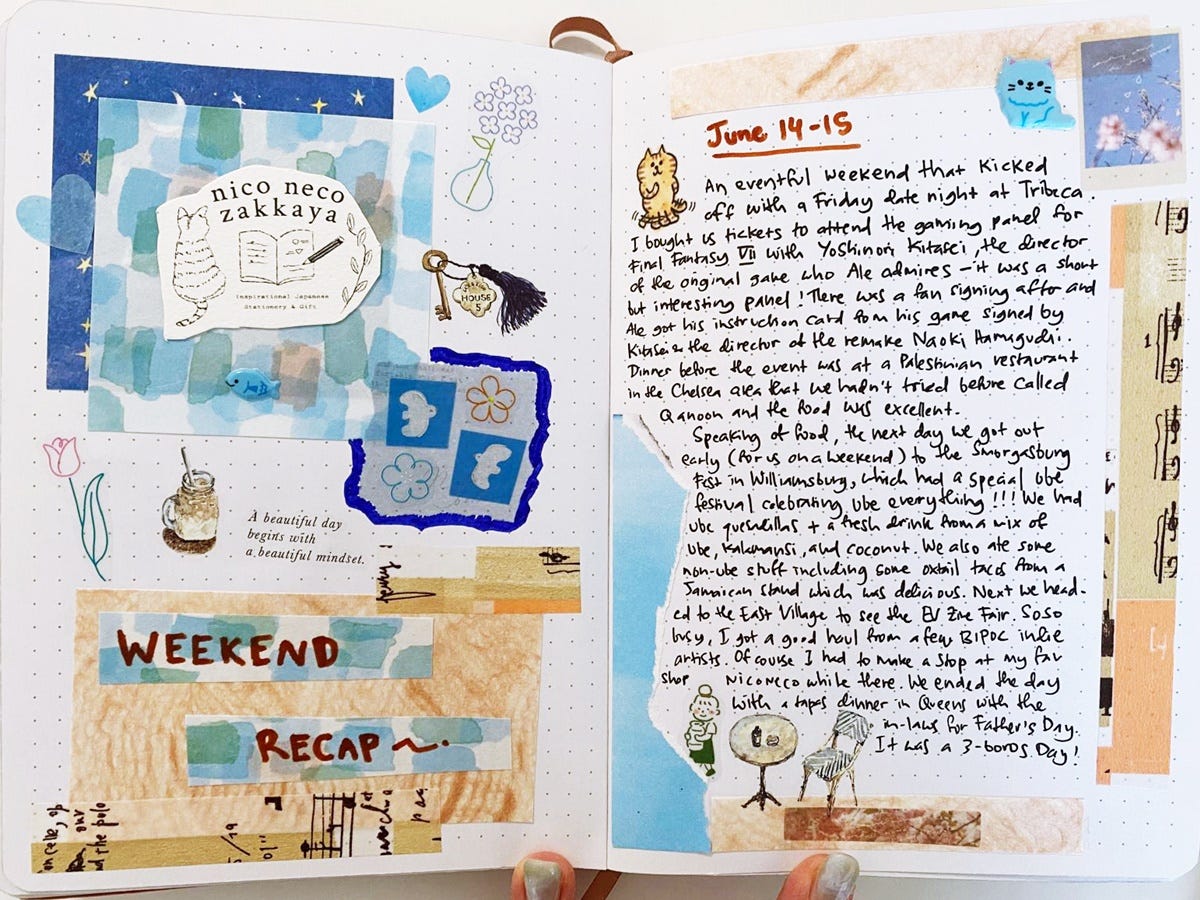 nico neco
zakkaya
Inspirational Japanese
Stationery & Gift
HOUSE
5
A beautiful day
begins with
a beautiful mindset.
WEEKEND
RECAP ~.
June 14-15
An eventful weekend that kicked
off with a Friday date night at Tribeca.
I bought us tickets to attend the gaming panel for
Final Fantasy VII with Yoshinori Kitasei, the director
of the original game who Ale admires - it was a short
but interesting panel! There was a fan signing after and
Ale got his instruction card from his game signed by
Kitase & the director of the remake Naoki Hamaguchi.
Dinner before the event was at a Palestinian restaurant
in the Chelsea area that we hadn't tried before called
Qanoon and the food was excellent.
Speaking of food, the next day we got out
early (for us on a weekend) to the Smorgasburg
Fest in Williamsburg, which had a special ube
festival celebrating ube everything!!! We had
ube quesadillas + a fresh drink from a mix of
ube, kalamansi, and coconut. We also ate some
non-ube stuff including some oxtail tacos from a
Jamaican stand which was delicious. Next we head-
ed to the East Village to see the EV Zine Fair. Soso
busy, I got a good haul from a few BIPOC indie
artists. Of course I had to make a stop at my fav
shop NICONECO while there. We ended the day
with a tapas dinner in Queens with the
in-laws for Father's Day.
It was a 3-boros Day!